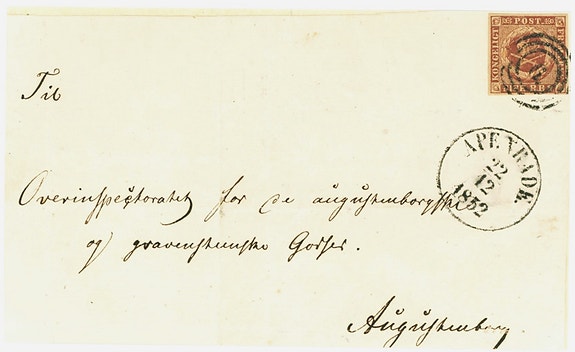 KONGELIGT POST. FR
FIRE R.B.S.
Til
APENRADE.
22
12
1852
Overinspectoratet for de augustenborgske
og gravensteenske Godser.
Augustenborg